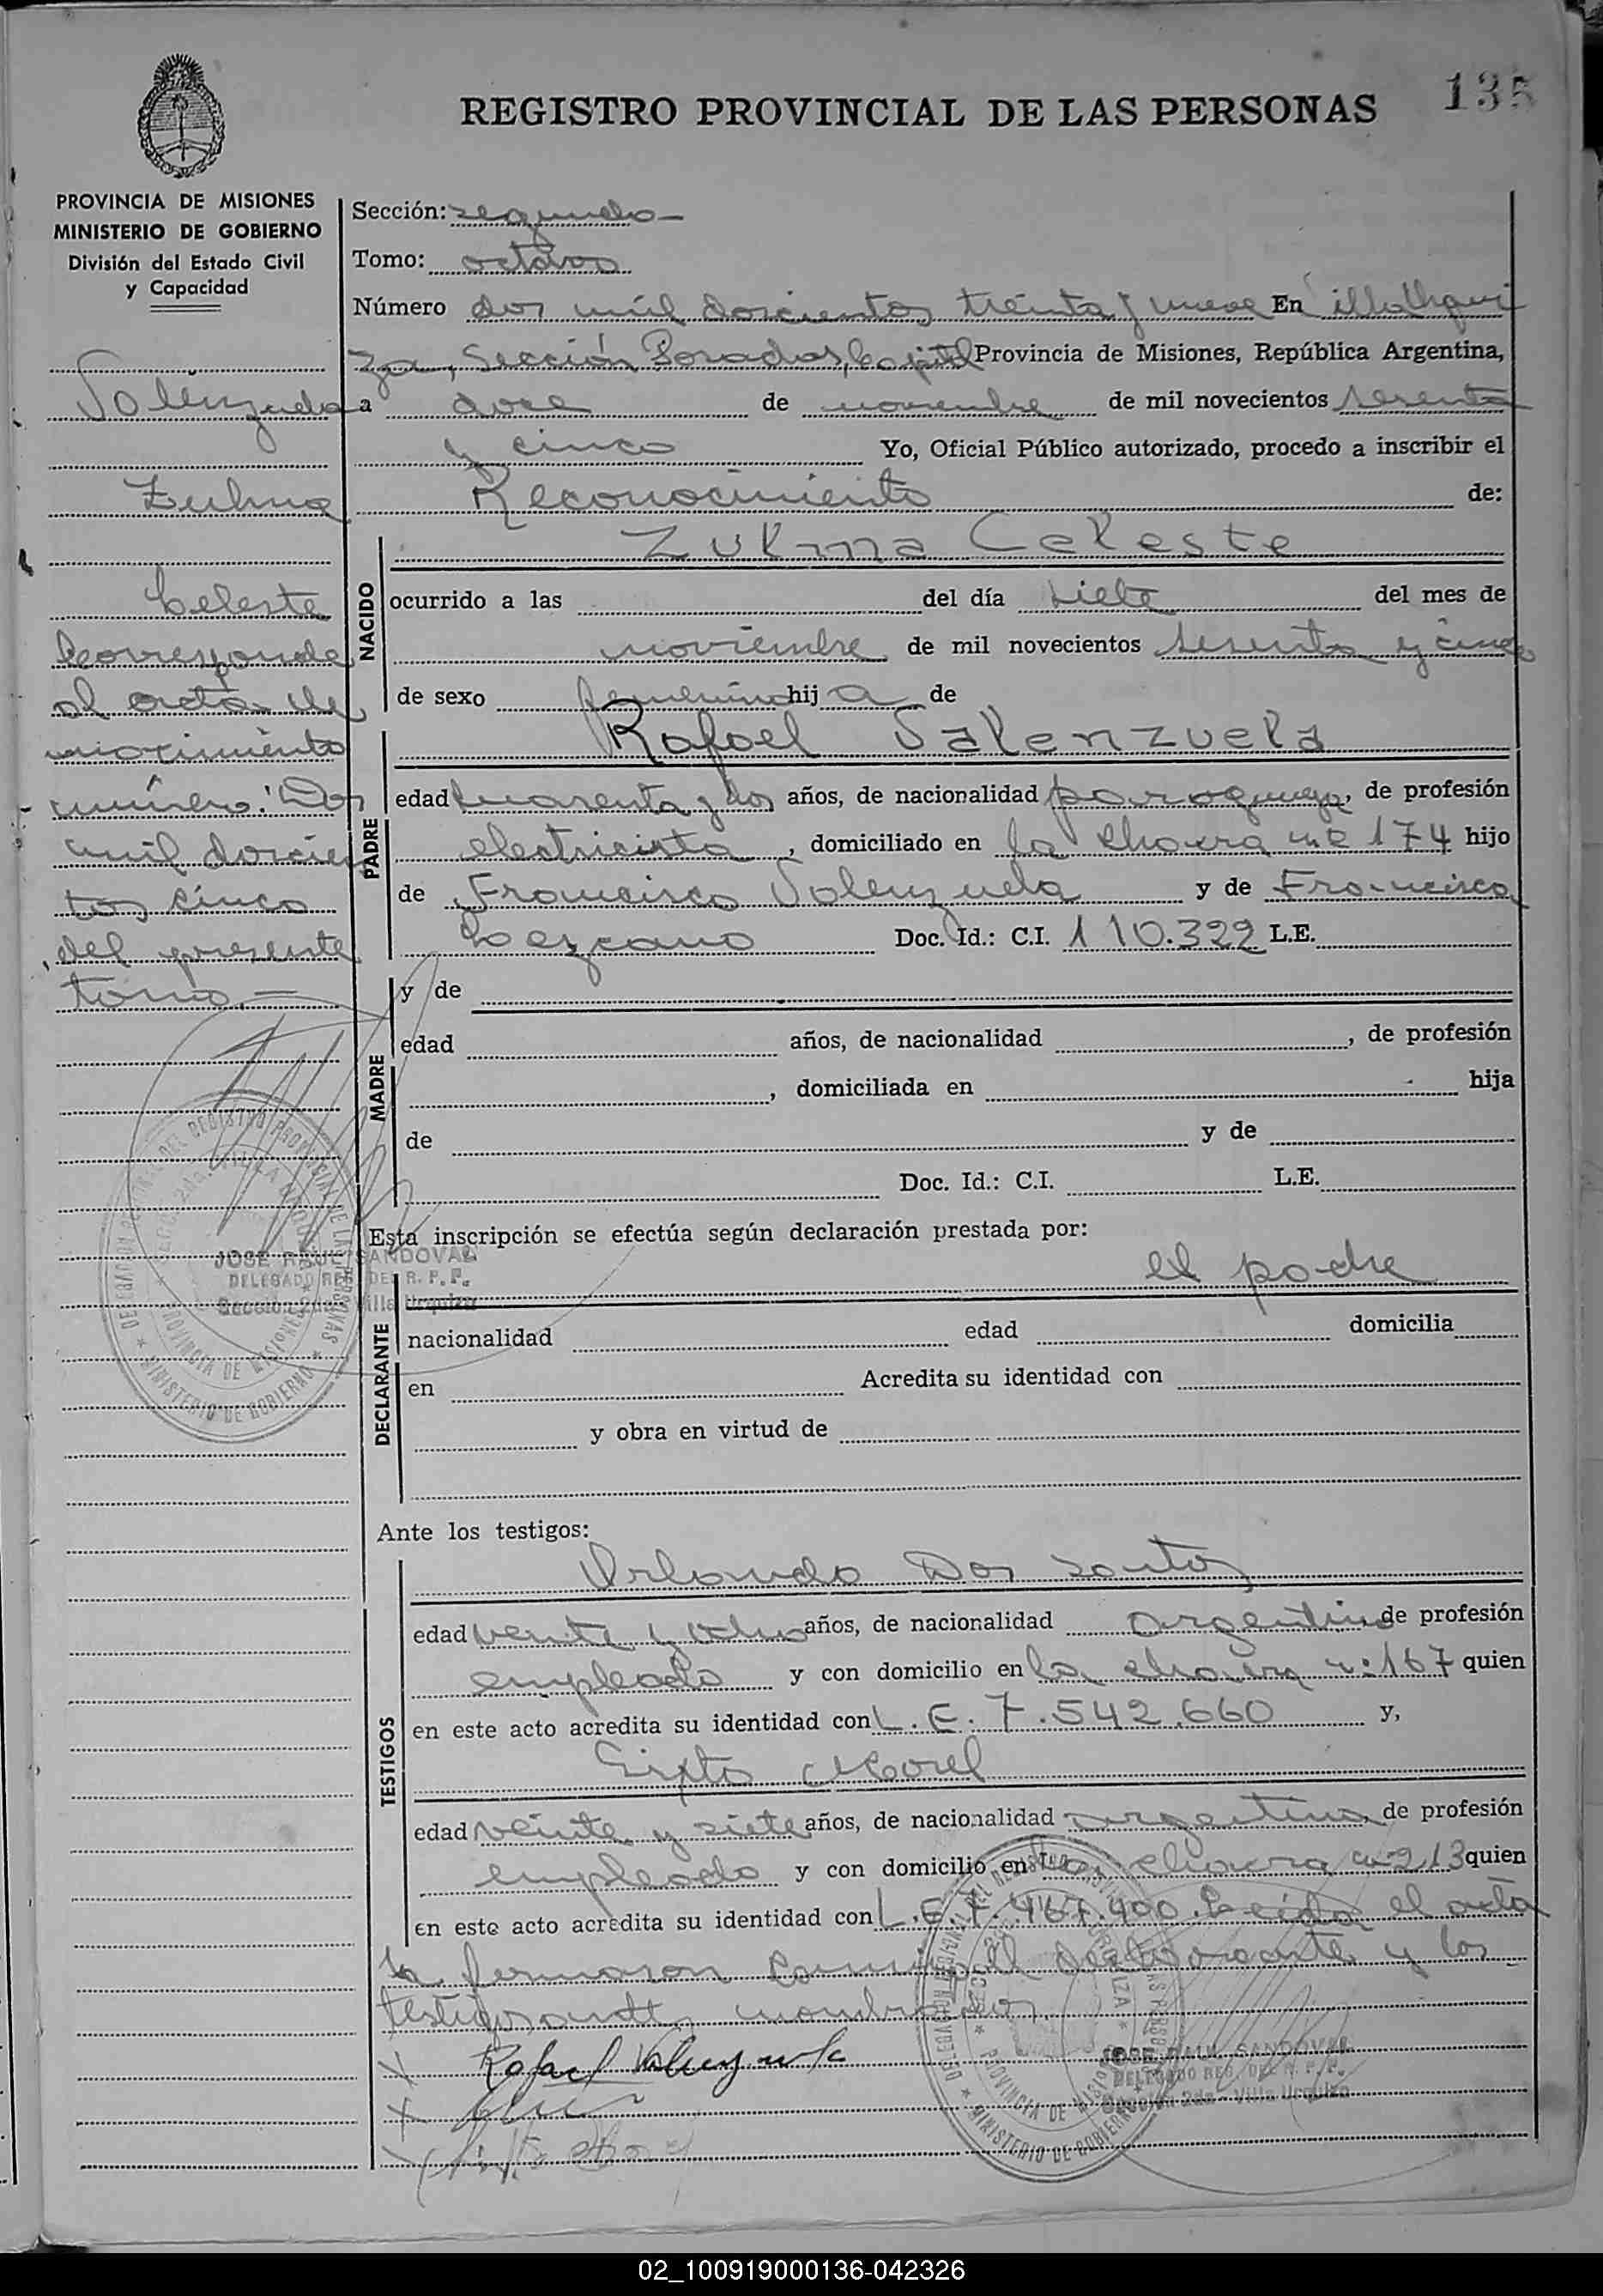 135
REGISTRO PROVINCIAL DE LAS PERSONAS
PROVINCIA DE MISIONES
MINISTERIO DE GOBIERNO
División del Estado Civil
y Capacidad
Valenzuela
Zulma
Celeste
Corresponde
al acta de
nacimiento
número: Dos
mil dorcien
tos cinco
del presente
tomo.—
Sección: segunda—
Tomo: octavo
Número dos mil dorcientos treinta y nueve En Villa Urqui
za, Sección Posadas, Capital Provincia de Misiones, República Argentina,
a doce de noviembre de mil novecientos sesenta
y cinco Yo, Oficial Público autorizado, procedo a inscribir el
Reconocimiento de:
NACIDO
Zulma Celeste
ocurrido a las del día siete del mes de
noviembre de mil novecientos sesenta y cinco
de sexo femenino hija de
PADRE
Rafael Valenzuela
edad cuarenta y dos años, de nacionalidad paraguaya, de profesión
electricista, domiciliado en la chacra nº 174 hijo
de Francisco Valenzuela y de Francisca
Lezcano Doc. Id.: C.I. 110.322 L.E.
MADRE
y de
edad años, de nacionalidad , de profesión
, domiciliada en hija
de y de
Doc. Id.: C.I. L.E.
Esta inscripción se efectúa según declaración prestada por:
el padre
DECLARANTE
nacionalidad edad domicilia
en Acredita su identidad con
y obra en virtud de
JOSE RAUL SANDOVAL
DELEGADO REG. DEL R. P. P.
Sección 2da. Villa Urquiza
Ante los testigos:
TESTIGOS
Orlando Dos santos
edad años, de nacionalidad argentina de profesión
empleado y con domicilio en la chacra nº 167 quien
en este acto acredita su identidad con L.E. 7.542.660 y,
Sixto Morel
edad veinte y siete años, de nacionalidad argentina, de profesión
empleado y con domicilio en la chacra nº 213 quien
en este acto acredita su identidad con L.E. 7.467.900. Leída el acta
la firmaron conmigo el declarante y los
testigos antes nombrados.
Rafael Valenzuela
JOSE RAUL SANDOVAL
DELEGADO REG. DEL R. P. P.
Sección 2da - Villa Urquiza
02_100919000136-042326